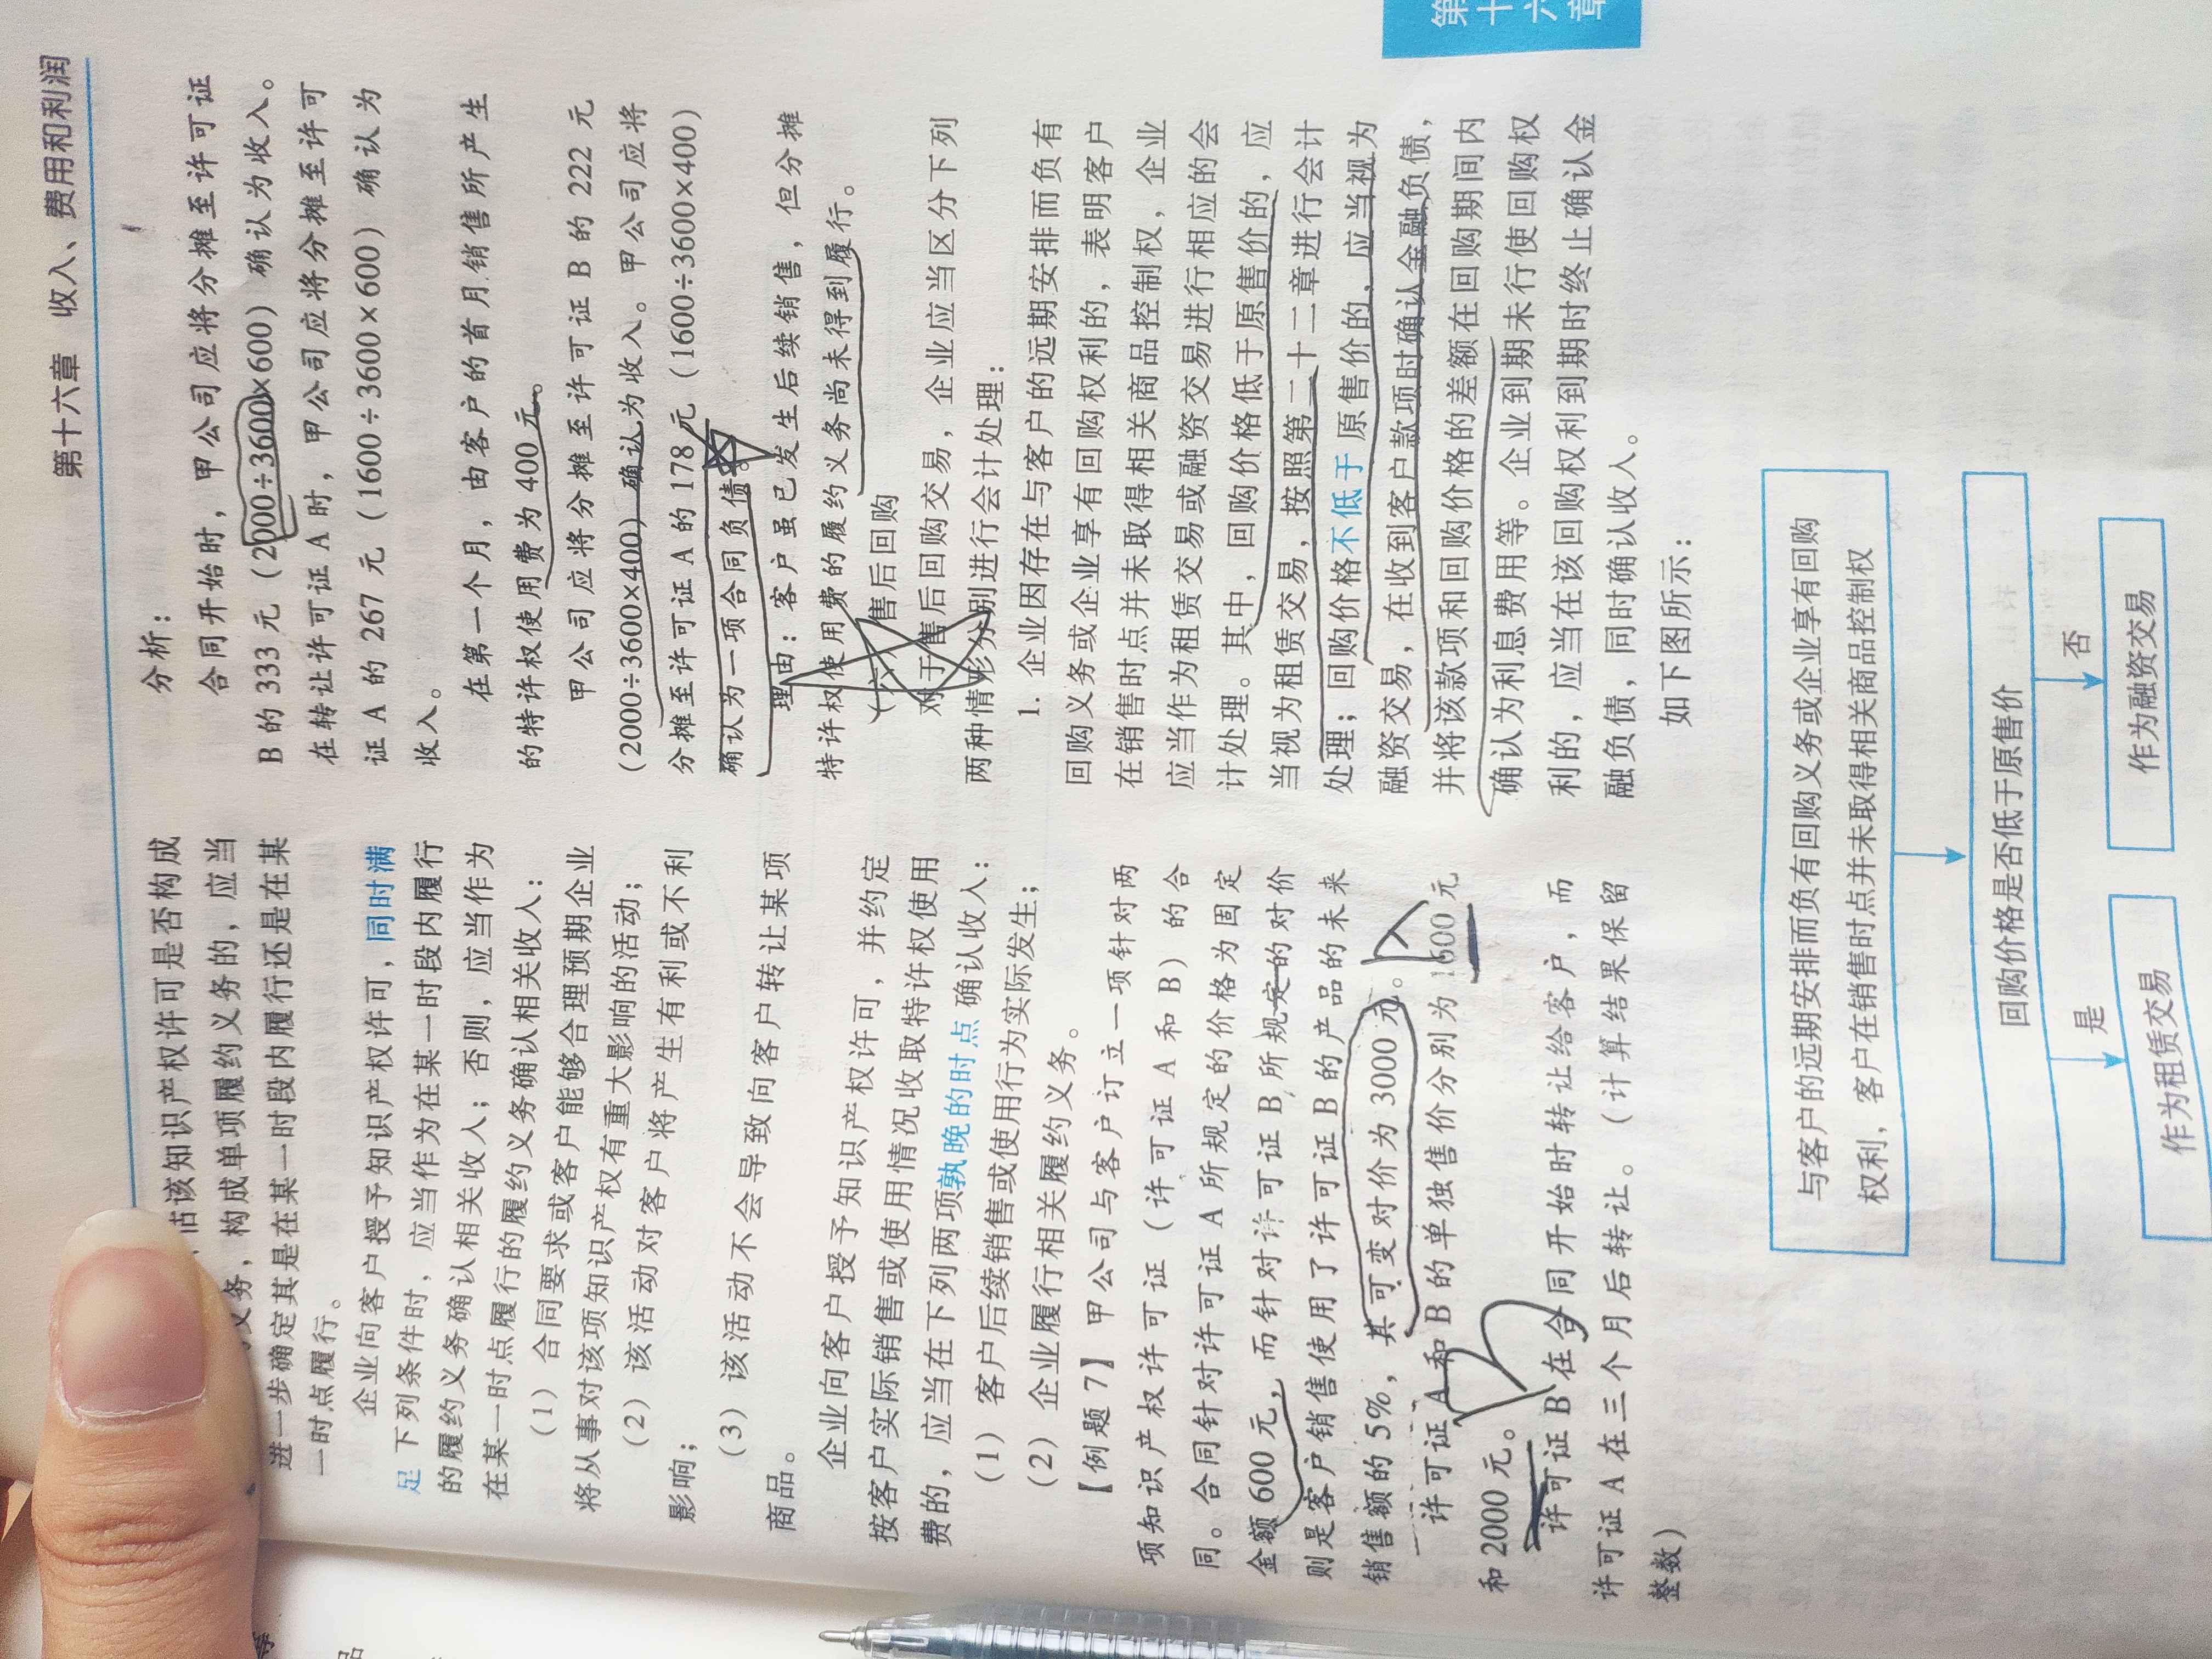 第十六章 收入、费用和利润
估该知识产权许可是否构成
义务，构成单项履约义务的，应当
进一步确定其是在某一时段内履行还是在某
一时点履行。
企业向客户授予知识产权许可，同时满
足下列条件时，应当作为在某一时段内履行
的履约义务确认相关收入；否则，应当作为
在某一时点履行的履约义务确认相关收入：
（1）合同要求或客户能够合理预期企业
将从事对该项知识产权有重大影响的活动；
（2）该活动对客户将产生有利或不利
影响；
（3）该活动不会导致向客户转让某项
商品。
企业向客户授予知识产权许可，并约定
按客户实际销售或使用情况收取特许权使用
费的，应当在下列两项孰晚的时点确认收入：
（1）客户后续销售或使用行为实际发生；
（2）企业履行相关履约义务。
【例题7】甲公司与客户订立一项针对两
项知识产权许可证（许可证A和B）的合
同。合同针对许可证A所规定的价格为固定
金额600元，而针对许可证B所规定的对价
则是客户销售使用了许可证B的产品的未来
销售额的5%，其可变对价为3000元。
许可证A和B的单独售价分别为1600元
和2000元。
许可证B在合同开始时转让给客户，而
许可证A在三个月后转让。（计算结果保留
整数）
分析：
合同开始时，甲公司应将分摊至许可证
B的333元（2000÷3600×600）确认为收入。
在转让许可证A时，甲公司应将分摊至许可
证A的267元（1600÷3600×600）确认为
收入。
在第一个月，由客户的首月销售所产生
的特许权使用费为400元。
甲公司应将分摊至许可证B的222元
（2000÷3600×400）确认为收入。甲公司应将
分摊至许可证A的178元（1600÷3600×400）
确认为一项合同负债。
理由：客户虽已发生后续销售，但分摊
特许权使用费的履约义务尚未得到履行。
（六）售后回购
对于售后回购交易，企业应当区分下列
两种情形分别进行会计处理：
1. 企业因存在与客户的远期安排而负有
回购义务或企业享有回购权利的，表明客户
在销售时点并未取得相关商品控制权，企业
应当作为租赁交易或融资交易进行相应的会
计处理。其中，回购价格低于原售价的，应
当视为租赁交易，按照第二十二章进行会计
处理；回购价格不低于原售价的，应当视为
融资交易，在收到客户款项时确认金融负债，
并将该款项和回购价格的差额在回购期间内
确认为利息费用等。企业到期未行使回购权
利的，应当在该回购权利到期时终止确认金
融负债，同时确认收入。
如下图所示：
与客户的远期安排而负有回购义务或企业享有回购
权利，客户在销售时点并未取得相关商品控制权
回购价格是否低于原售价
是
否
作为租赁交易
作为融资交易
第
十
六
章